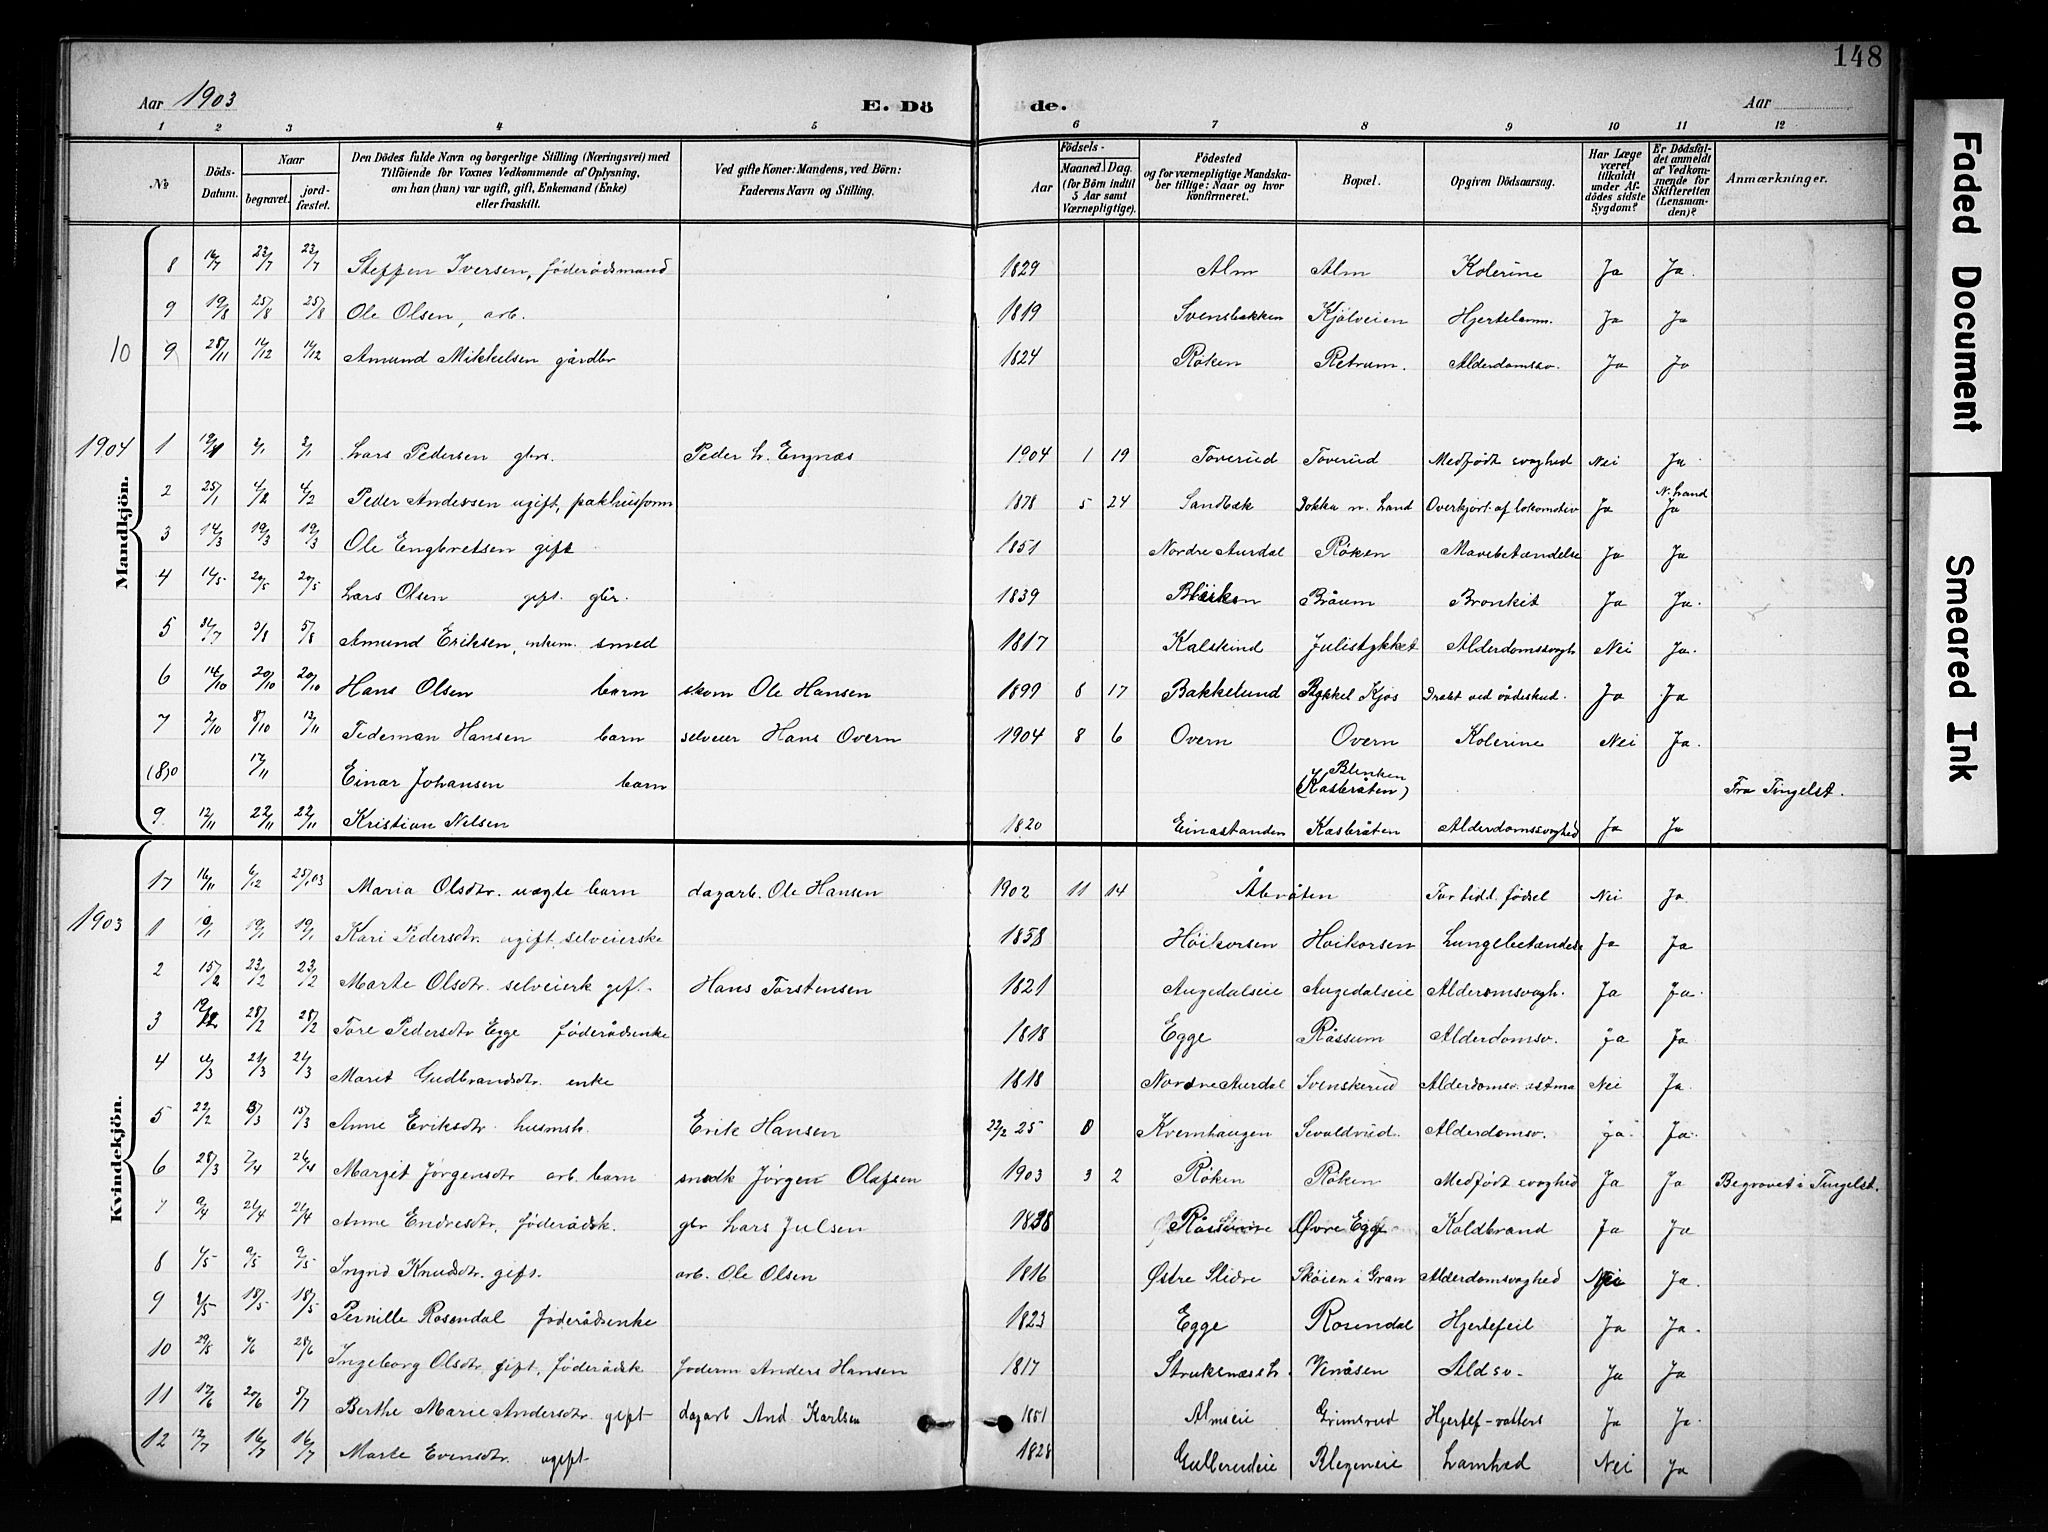 148
Aar 1903 E. Dö de. Aar
1 2 3 4 5 6 7 8 9 10 11 12
№ Döds-Datum. Naar begravet. jord-fæstet. Den Dödes fulde Navn og borgerlige Stilling (Næringsvei) med Tilföiende for Voxnes Vedkommende af Oplysning, om han (hun) var ugift, gift, Enkemand (Enke) eller fraskilt. Ved gifte Koner: Mandens, ved Börn: Faderens Navn og Stilling. Födsels- Aar Maaned Dag. (for Börn indtil 5 Aar samt Værnepligtige). Födested og for værnepligtige Mandska-ber tillige: Naar og hvor konfirmeret. Bopæl. Opgiven Dödsaarsag. Har Læge været tilkaldt under Af-dödes sidste Sygdom? Er Dödsfal-det anmeldt af Vedkom-mende for Skifteretten (Lensman-den)? Anmærkninger.
Mandkjön.
8 16/7 23/7 23/7 Steffen Iversen, föderådsmand 1829 Alm Alm Kolerine Ja Ja.
9 19/8 25/8 25/8 Ole Olsen, arb. 1819 Svensbakken Kjölveien Hjertelam. Ja Ja
10 9 28/11 14/12 14/12 Amund Mikkelsen gårdbr 1824 Röken Retrum. Alderdomssv. Ja Ja
1904 1 Lars Pedersen gbrs. Peder L. Engnæs 1904 1 19 Toverud Toverud Medfödt svaghed Nei Ja
2 25/1 4/2 4/2 Peder Andersen ugift, pakhusform 1878 5 24 Sandbæk Dokka n. Land Overkjört af lokomotiv Ja N. Land Ja
3 14/3 19/3 19/3 Ole Engbretsen gift 1851 Nordre Aurdal Röken Mavebetændelse Ja Ja
4 14/5 20/5 20/5 Lars Olsen gift. gbr. 1839 Bråum Bronkit Ja Ja.
5 31/7 5/8 5/8 Amund Eriksen, enkem. smed 1817 Kalskind Julistykket Alderdomssvagh Nei Ja.
6 14/10 20/10 20/10 Hans Olsen barn skom Ole Hansen 1899 8 17 Bakkelund Bykkel Kjos Dræbt ved vådeskud. Ja Ja
7 2/10 8/10 12/11 Tideman Hansen barn selveier Hans Overn 1904 8 6 Overn Overn Kolerine Nei Ja.
(8)0 12/11 Einar Johansen barn Blinken (Kasbråten) Fra Tingelst.
9 12/11 22/11 22/11 Kristian Nilsen 1820 Einastanden Kasbråten Alderdomssvaghed Ja Ja
Kvindekjön.
17 16/11 6/12 25/1 03 Maria Olsdtr. uægte barn dagarb. Ole Hansen 1902 11 14 Åbråten For tidl. födsel Nei Ja
1903 1 9/1 19/1 19/1 Kari Pedersdtr. ugift, selveierske 1858 Höikorsen Höikorsen Lungebetændelse Ja Ja
2 15/2 23/2 23/2 Marte Olsdtr. selveierk gift. Hans Torstensen 1821 Augedalseie Augedalseie Alderdomsvagh. Ja Ja.
3 28/2 28/2 Tore Pedersdtr Egge föderådsenke 1818 Egge Råssum Alderdomsv. ja Ja
4 21/3 21/3 Marit Gudbrandsdtr. enke 1818 Nordre Aurdal Svenskerud Alderdomsv. astma Nei Ja.
5 22/2 8/3 15/3 Anne Eriksdtr. husmsk. Erik Hansen 22/2 25 0 Kremhaugen Sevaldrud. Alderdomsv. ja Ja.
6 28/3 7/4 26/4 Margit Jörgensdtr arb. barn snedk Jörgen Olafsen 1903 3 2 Röken Röken Medfödt svaghed Ja Ja Begravet i Tingelst.
7 9/4 21/4 21/4 Anne Endresdtr. föderådsk. gbr Lars Julsen 1838 Øvre Egge Koldbrand Ja Ja
8 4/5 9/5 9/5 Ingrid Knudsdtr. gift. arb. Ole Olsen 1816 Østre Slidre Sköien i Gran Alderdomsvaghed Nei Ja.
9 18/5 18/5 Pernille Rosendal föderådsenke 1823 Egge Rosendal Hjertefeil Ja Ja.
10 29/5 6/6 28/6 Ingeborg Olsdtr. gift, föderådsk föderm Anders Hansen 1817 Struksnæsst. Venåsen Ald sv. Ja Ja
11 17/6 20/6 5/7 Berthe Marie Andersdtr. gift dagarb And Karlsen 1851 Almseie Grimsrud Hjertef-vatters Ja Ja.
12 12/7 16/7 16/7 Marte Evensdtr. ugift 1828 Gullerudeie Blegeneie Lamhed Nei Ja
Faded Document
Smeared Ink